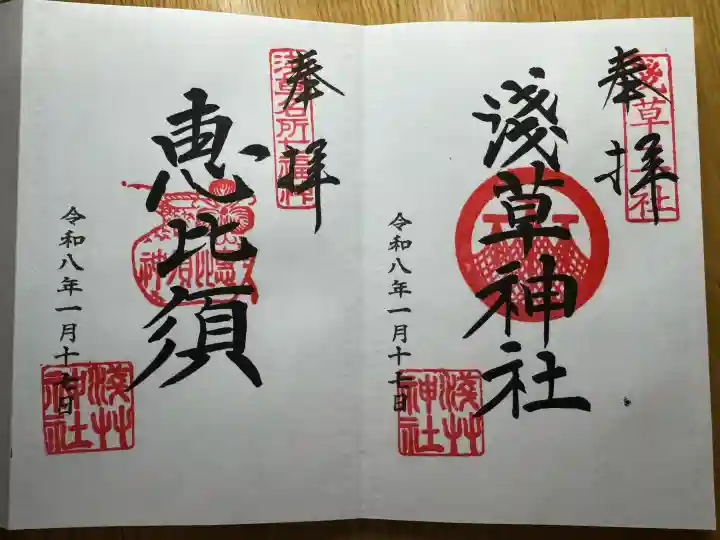 奉拝
淺草神社
三社
淺草神社
令和八年一月十七日
奉拝
浅草名所七福神
恵比須
恵比須神
淺草神社
令和八年一月十七日